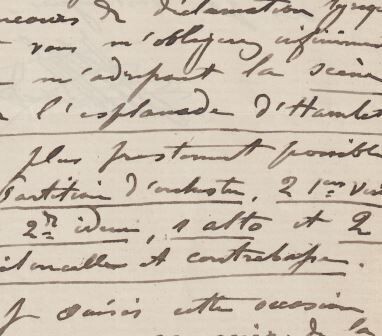 ncours de déclamation lyriqu
vous m'obligerez infinimen
m'adressant la scène
l'esplanade d'Hamlet
plus prestement possible
Partition d'orchestre, 2 1ers vio
2ds idem, 1 alto et 2
violoncelles et contrebasse.
Je saisis cette occasion
de l'a